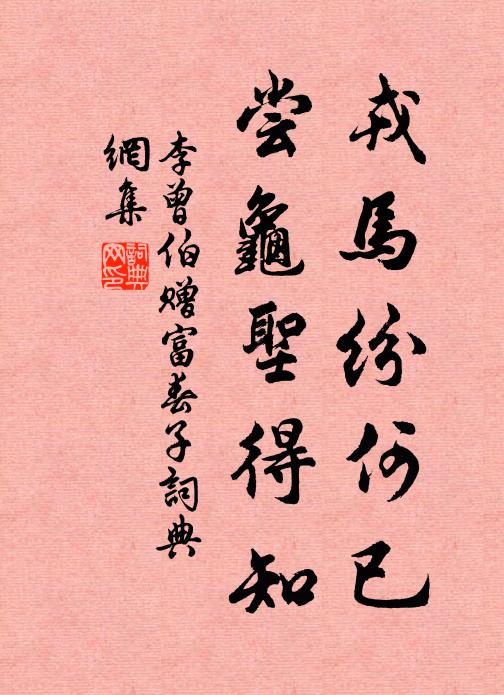 戎馬紛何已
尝龜聖得知
李曾伯贈富春子詞典
網集
詞典
网印